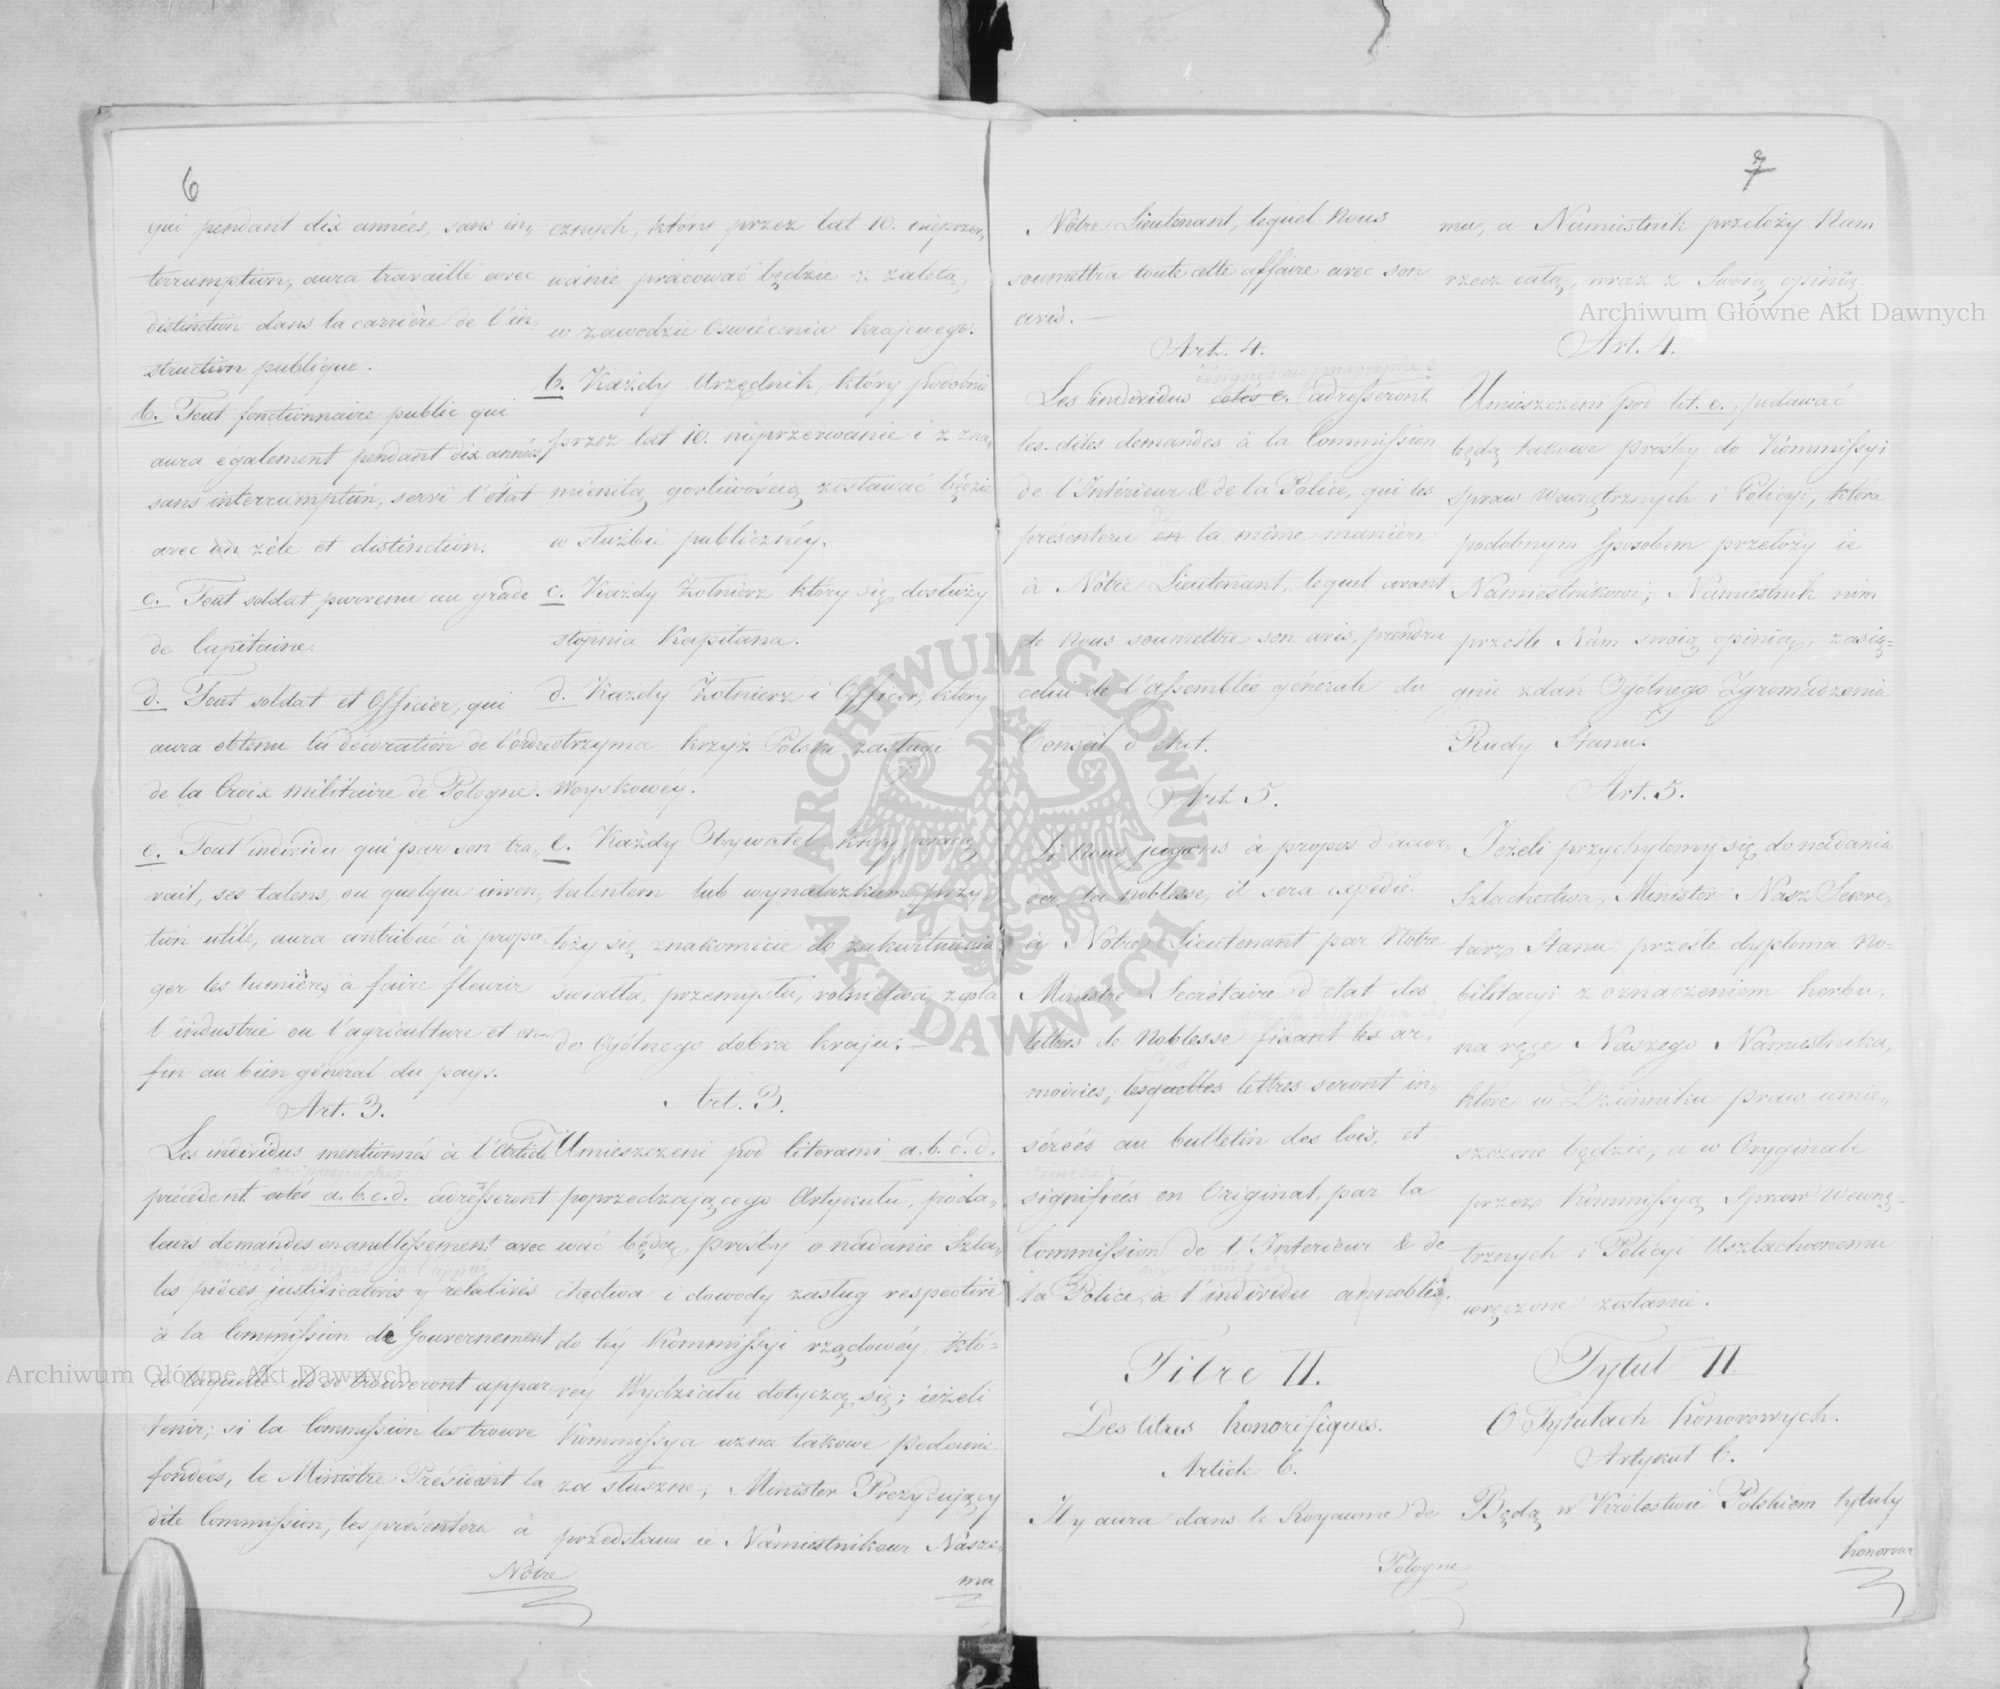 6
qui pendant dix années, sans in„
terrumption, aura travaillé avec
distinction dans la carrière de l'in„
struction publique.
b. Tout fonctionnaire public qui
aura egalement pendant dix années
sans interrumption, servi l'état
avec un zèle et distinction.
c. Tout soldat parvenu au grade
de Capitaine.
d. Tout soldat et Officier, qui
aura obtenu la décoration de l'ordre
de la Croix militaire de Pologne.
e. Tout individu qui par son tra„
vail, ses talens, ou quelque inven„
tion utile, aura contribué à propa„
ger les lumières, à faire fleurir
l'industrie ou l'agriculture et en„
fin au bien général du pays.
Art. 3.
Les individus mentionnés à l'Article
précédent cotés a. b. c. d. adresseront
leurs demandes en anoblissement avec
les pièces justificatives y relatives
à la Commission de Gouvernement
à laquelle ils se trouveront appar
tenir; si la Commission les trouve
fondées, le Ministre Président la
dite Commission, les présentera à
Nôtre
cznych, który przez lat 10. nieprzer„
wanie pracować będzie z zaletą,
w zawodzie Oswiécenia krajowego.
b. Każdy Urzędnik, który podobnie
przez lat 10. nieprzerwanie i z zna„
mienitą gorliwością zostawać będzie
w służbie publicznéy.
c. Każdy Żołnierz który się dosłuży
stopnia Kapitana.
d. Każdy Żołnierz i Officer, który
otrzyma krzyż Polski zasługi
Woyskowéy.
e. Każdy Obywatel który pracą
talentem lub wynalazkiem przy„
łoży się znakomicie do zakwitnienia
swiatła, przemysłu, rolnictwa, zgoła
do Ogólnego dobra kraju.
Art. 3.
Umieszczeni pod literami a. b. c. d.
poprzedzającego Artykułu, poda„
wać będą prośby o nadanie Szla„
chectwa i dowody zasług respective
do téy Kommissyi rządowéy, któ=
réy Wydziału dotyczą się; ieżeli
Kommissya uzna takowe podanie
za słuszne, Minister Prezydujący
przedstawi ie Namiestnikowi Nasze„
mu
7
Nôtre Lieutenant, lequel Nous
soumettra toute cette affaire avec son
avis.
Art. 4.
désignés au paragraphe e
Les individus cotés e. adresseront
les-dites demandes à la Commission
de l'Intérieur & de la Police, qui les
de
présentera en la même manière
à Nôtre Lieutenant, lequel avant
de Nous soumettre son avis, prendra
celui de l'assemblée générale du
Conseil d'état.
Art. 5.
Si Nous jugeons à propos d'accor„
der la noblesse, il sera expédié
à Notre Lieutenant par Notre
Ministre Secrétaire d'état des
lettres de Noblesse fixant les ar„
moiries; lesquelles lettres seront in„
sérées au bulletin des lois, et
signifiées en Original, par la
Commission de l'Interieur & de
la Police à l'individu annobli.
Titre II.
Des titres honorifiques.
Article 6.
Il y aura dans le Royaume de
Pologne
mu, a Namiestnik przełoży Nam
rzecz całą, wraz z Swoią opinią.
Art. 4.
Umieszczeni pod lit. e., podawać
będą takowe prośby do Kommissyi
Spraw Wewnętrznych i Policyi, która
podobnym sposobem przełoży ie
Namiestnikowi; Namiestnik nim
prześle Nam swoią opinią, zasię=
gnie zdań Ogólnego Zgromadzenia
Rady Stanu.
Art. 5.
Jeżeli przychylemy się do nadania
Szlachectwa, Minister Nasz Sekre„
tarz Stanu, prześle dyploma No=
bilitacyi z oznaczeniem herbu,
na ręce Naszego Namiestnika,
które w Dzienniku praw umie„
szczone będzie, a w Oryginale
przez Kommissyą Spraw Wewnę=
trznych i Policyi Uszlachconemu
wręczone zostanie.
Tytuł II.
O Tytułach honorowych.
Artykuł 6.
Będą w Królestwie Polskiem tytuły
honorowe
Archiwum Główne Akt Dawnych
Archiwum Główne Akt Dawnych
ARCHIWUM GŁÓWNE AKT DAWNYCH